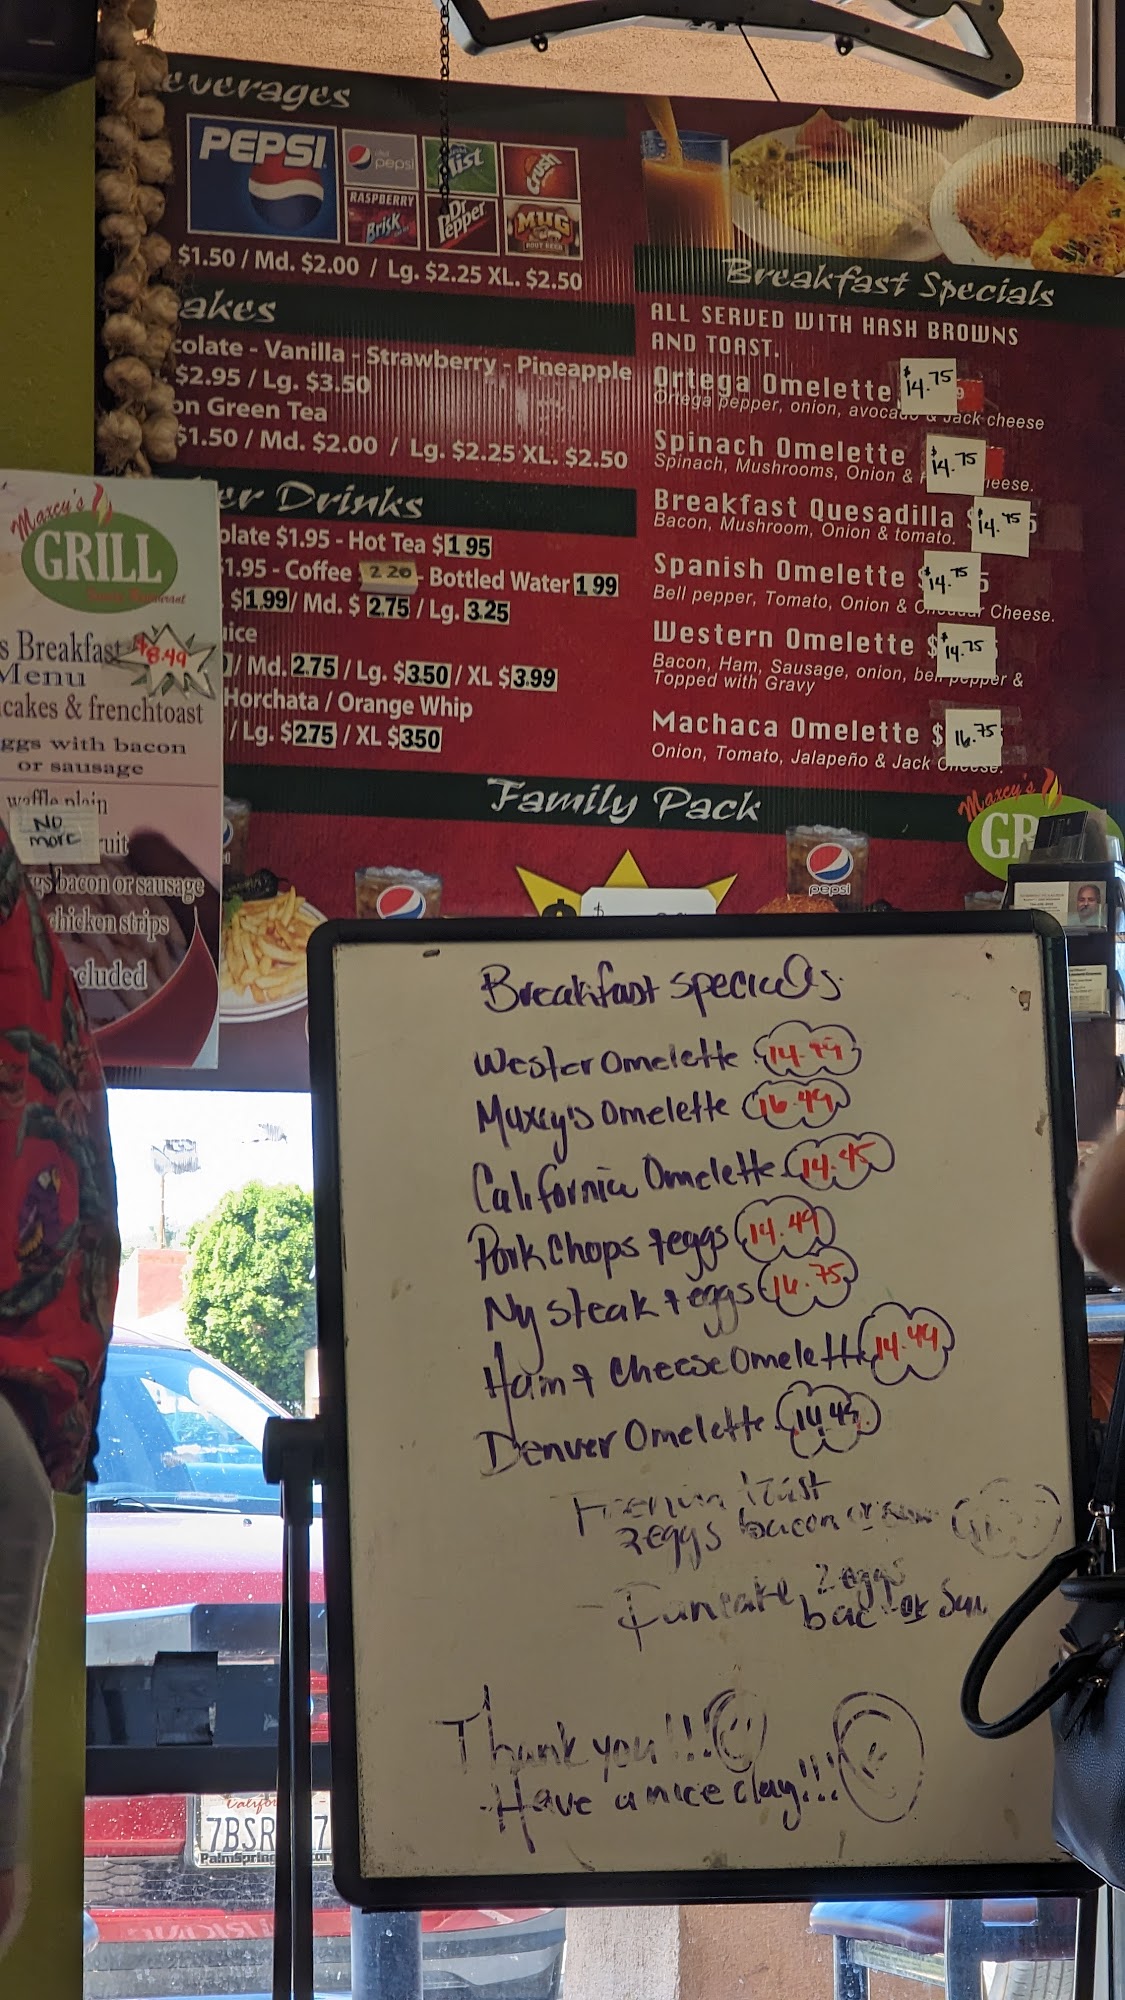 everages
PEPSI
pepsi
Mist
Crush
RASPBERRY
Brisk
Dr Pepper
MUG
ROOT BEER
$1.50 / Md. $2.00 / Lg. $2.25 XL. $2.50
akes
colate - Vanilla - Strawberry - Pineapple
$2.95 / Lg. $3.50
on Green Tea
$1.50 / Md. $2.00 / Lg. $2.25 XL. $2.50
er Drinks
olate $1.95 - Hot Tea $1 95
1.95 - Coffee 2 20 - Bottled Water 1 99
$1.99/ Md. $ 2.75 / Lg. 3.25
uice
/ Md. 2.75 / Lg. $3.50 / XL $3.99
Horchata / Orange Whip
/ Lg. $2.75 / XL $3.50
Breakfast Specials
ALL SERVED WITH HASH BROWNS
AND TOAST.
Ortega Omelette $14.75
Ortega pepper, onion, avocado & Jack cheese
Spinach Omelette $14.75
Spinach, Mushrooms, Onion & heese.
Breakfast Quesadilla $14.75
Bacon, Mushroom, Onion & tomato.
Spanish Omelette $14.75
Bell pepper, Tomato, Onion & Cheddar Cheese.
Western Omelette $14.75
Bacon, Ham, Sausage, onion, bell pepper &
Topped with Gravy
Machaca Omelette $16.75
Onion, Tomato, Jalapeño & Jack Cheese.
Family Pack
pepsi
Maxcy's
GR
Maxcy's
GRILL
s Breakfast $8.49
Menu
cakes & frenchtoast
ggs with bacon
or sausage
waffle plain
NO
more
ruit
gs bacon or sausage
chicken strips
cluded
Breakfast specials
Wester Omelette 14.99
Maxcy's Omelette 16.49
California Omelette 14.45
Pork Chops & eggs 14.49
Ny steak & eggs 16.75
Ham & Cheese Omelette 14.49
Denver Omelette 14.45
French toast
2 eggs bacon or
- Pancake, 2 eggs
bac or Sau
Thank you!!!
Have a nice day!!!
Califor
7BSR 7
PalmSprin